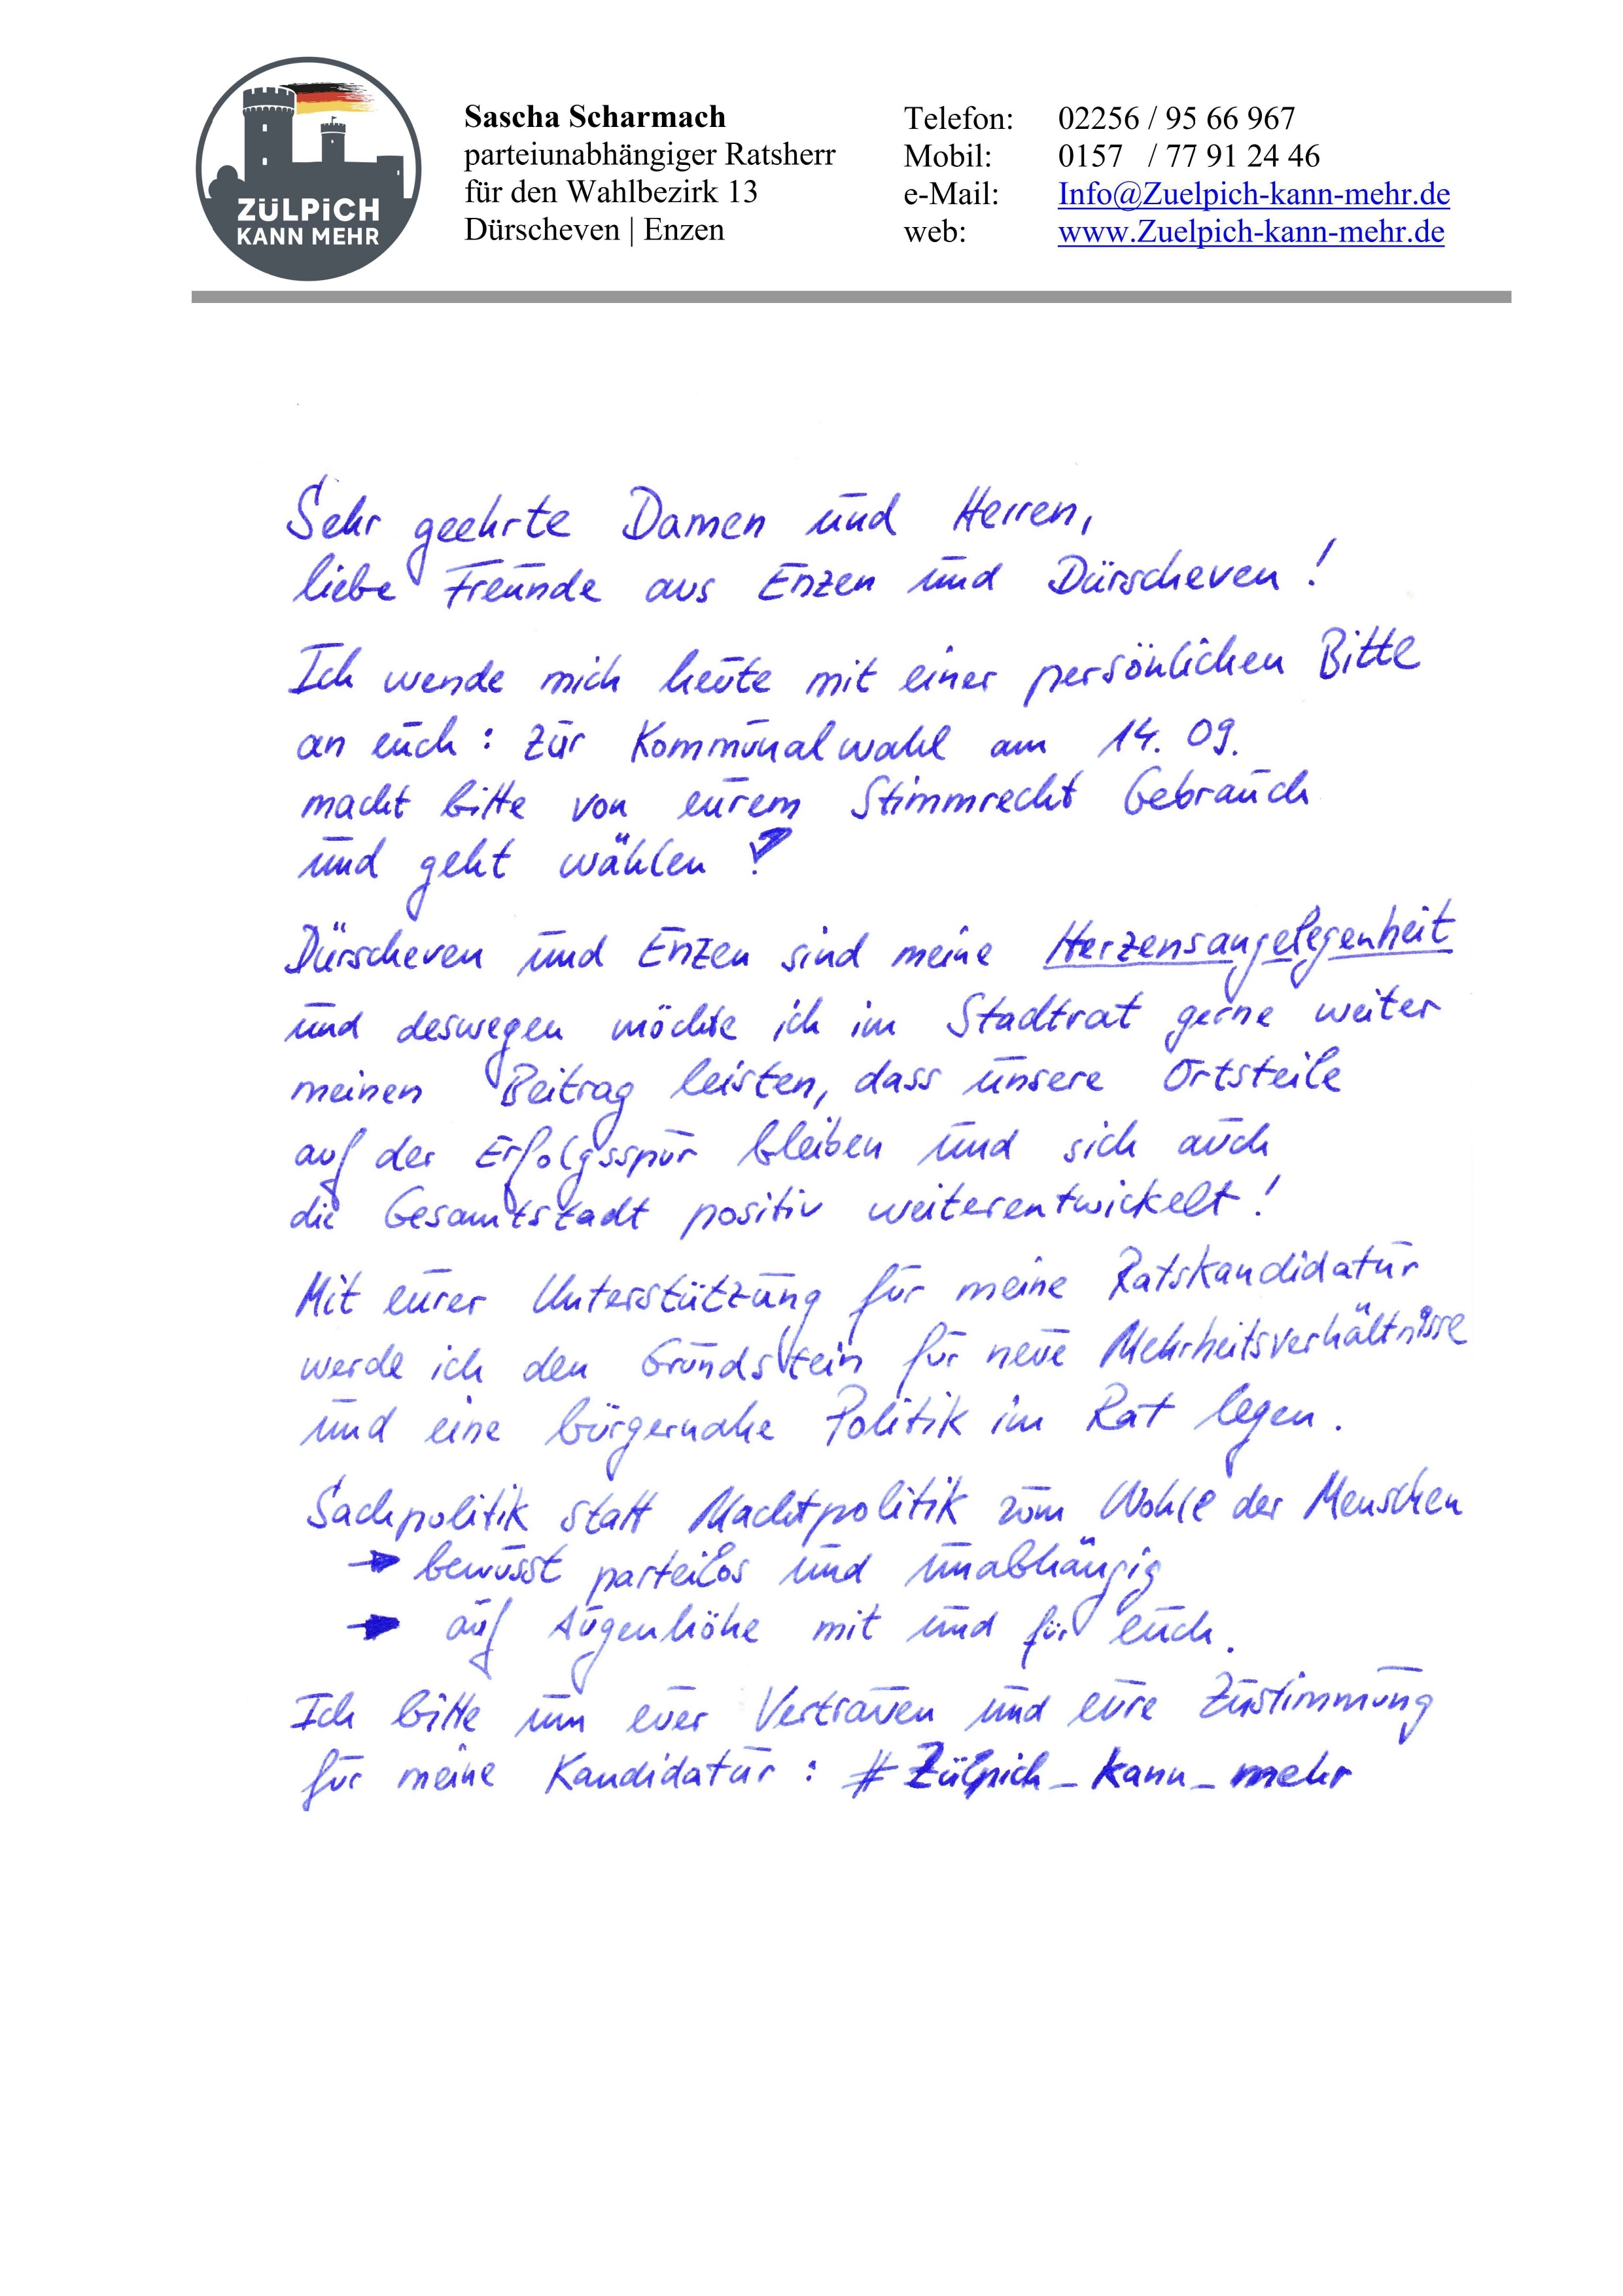 ZÜLPiCH
KANN MEHR
Sascha Scharmach
parteiunabhängiger Ratsherr
für den Wahlbezirk 13
Dürscheven | Enzen
Telefon: 02256 / 95 66 967
Mobil: 0157 / 77 91 24 46
e-Mail: Info@Zuelpich-kann-mehr.de
web: www.Zuelpich-kann-mehr.de
Sehr geehrte Damen und Herren,
liebe Freunde aus Enzen und Dürscheven!
Ich wende mich heute mit einer persönlichen Bitte
an euch: Zur Kommunalwahl am 14. 09.
macht bitte von eurem Stimmrecht Gebrauch
und geht wählen!
Dürscheven und Enzen sind meine Herzensangelegenheit
und deswegen möchte ich im Stadtrat gerne weiter
meinen Beitrag leisten, dass unsere Ortsteile
auf der Erfolgsspur bleiben und sich auch
die Gesamtstadt positiv weiterentwickelt!
Mit eurer Unterstützung für meine Ratskandidatur
werde ich den Grundstein für neue Mehrheitsverhältnisse
und eine bürgernahe Politik im Rat legen.
Sachpolitik statt Machtpolitik zum Wohle der Menschen
→ bewusst parteilos und unabhängig
→ auf Augenhöhe mit und für euch.
Ich bitte um euer Vertrauen und eure Zustimmung
für meine Kandidatur: #Zülpich_kann_mehr